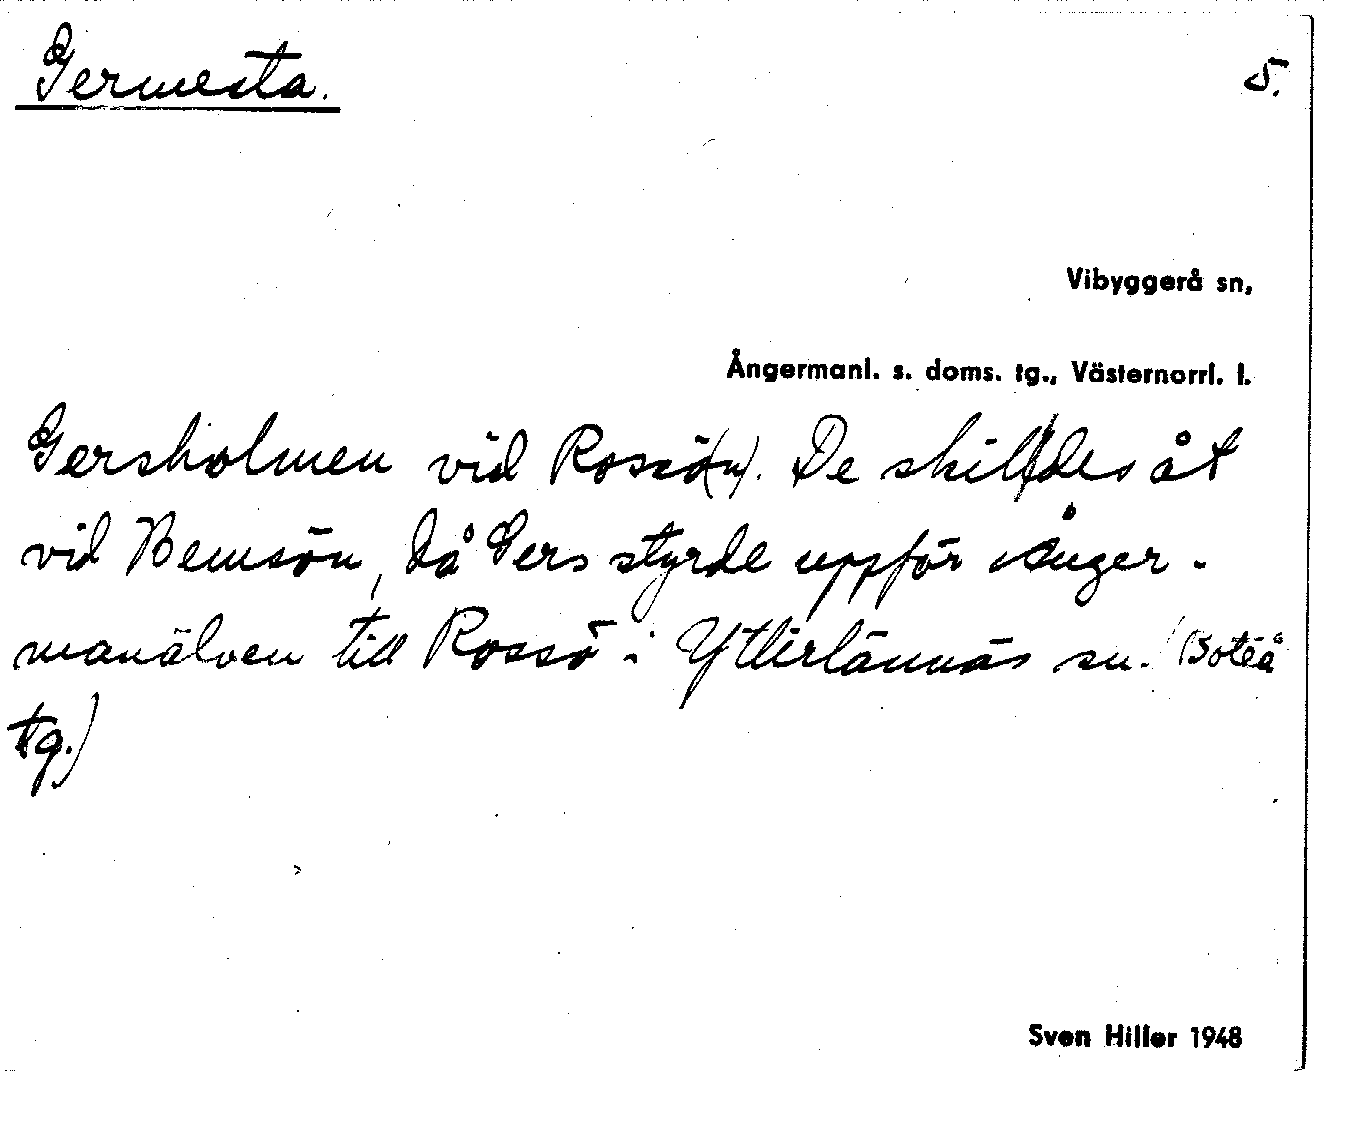 Germesta.
5.
Vibyggerå sn,
Ångermanl. s. doms. tg., Västernorrl. l.
Gersholmen vid Rossö(n). De skildes åt
vid Hemsön, då Gers styrde uppför Ånger-
manälven till Rossö i Ytterlännäs sn. (Boteå
tg.)
Sven Hiller 1948